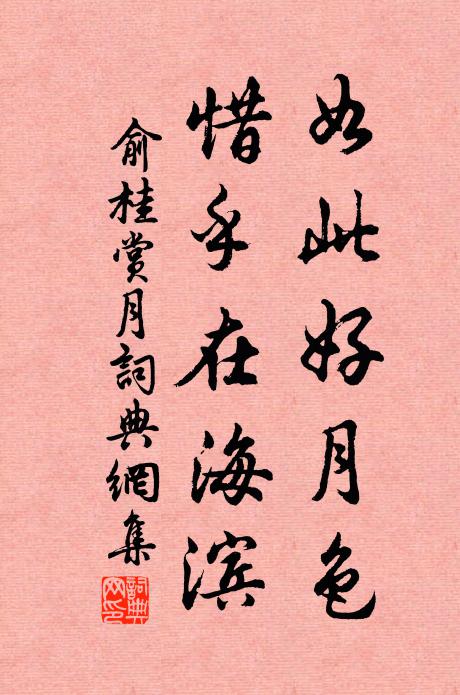 如此好月色
惜乎在海滨
俞桂赏月詞典網集
詞典网印